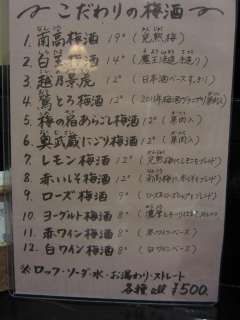 こだわりの梅酒
1. 南高梅酒 19° (完熟梅)
2. 白玉梅酒 14°
3. 越乃景虎 12° (日本酒ベースすっきり)
4. 鶯とろ梅酒 12°
5. 梅の宿あらごし梅酒 12° (果肉入)
6. 奥武蔵にごり梅酒 12° (果肉入)
7. レモン梅酒 12°
8. 赤いしそ梅酒 12°
9. ローズ梅酒 9°
10. ヨーグルト梅酒 8°
11. 赤ワイン梅酒 8° (赤ワインベース)
12. 白ワイン梅酒 8° (白ワインベース)
※ロック・ソーダ・水・お湯わり・ストレート
各種 all ¥500.